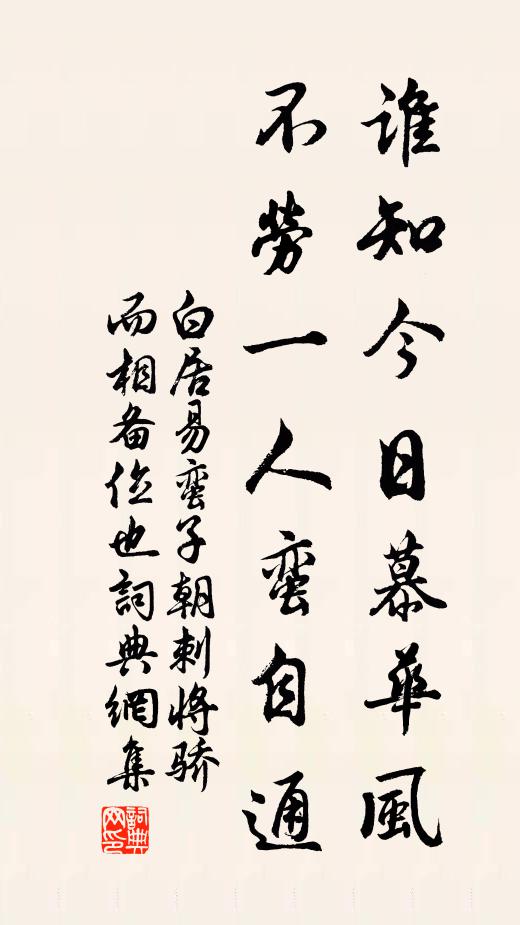 谁知今日慕华風
不勞一人蛮自通
白居易蛮子朝刺将骄
而相备位也詞典網集
詞典網印